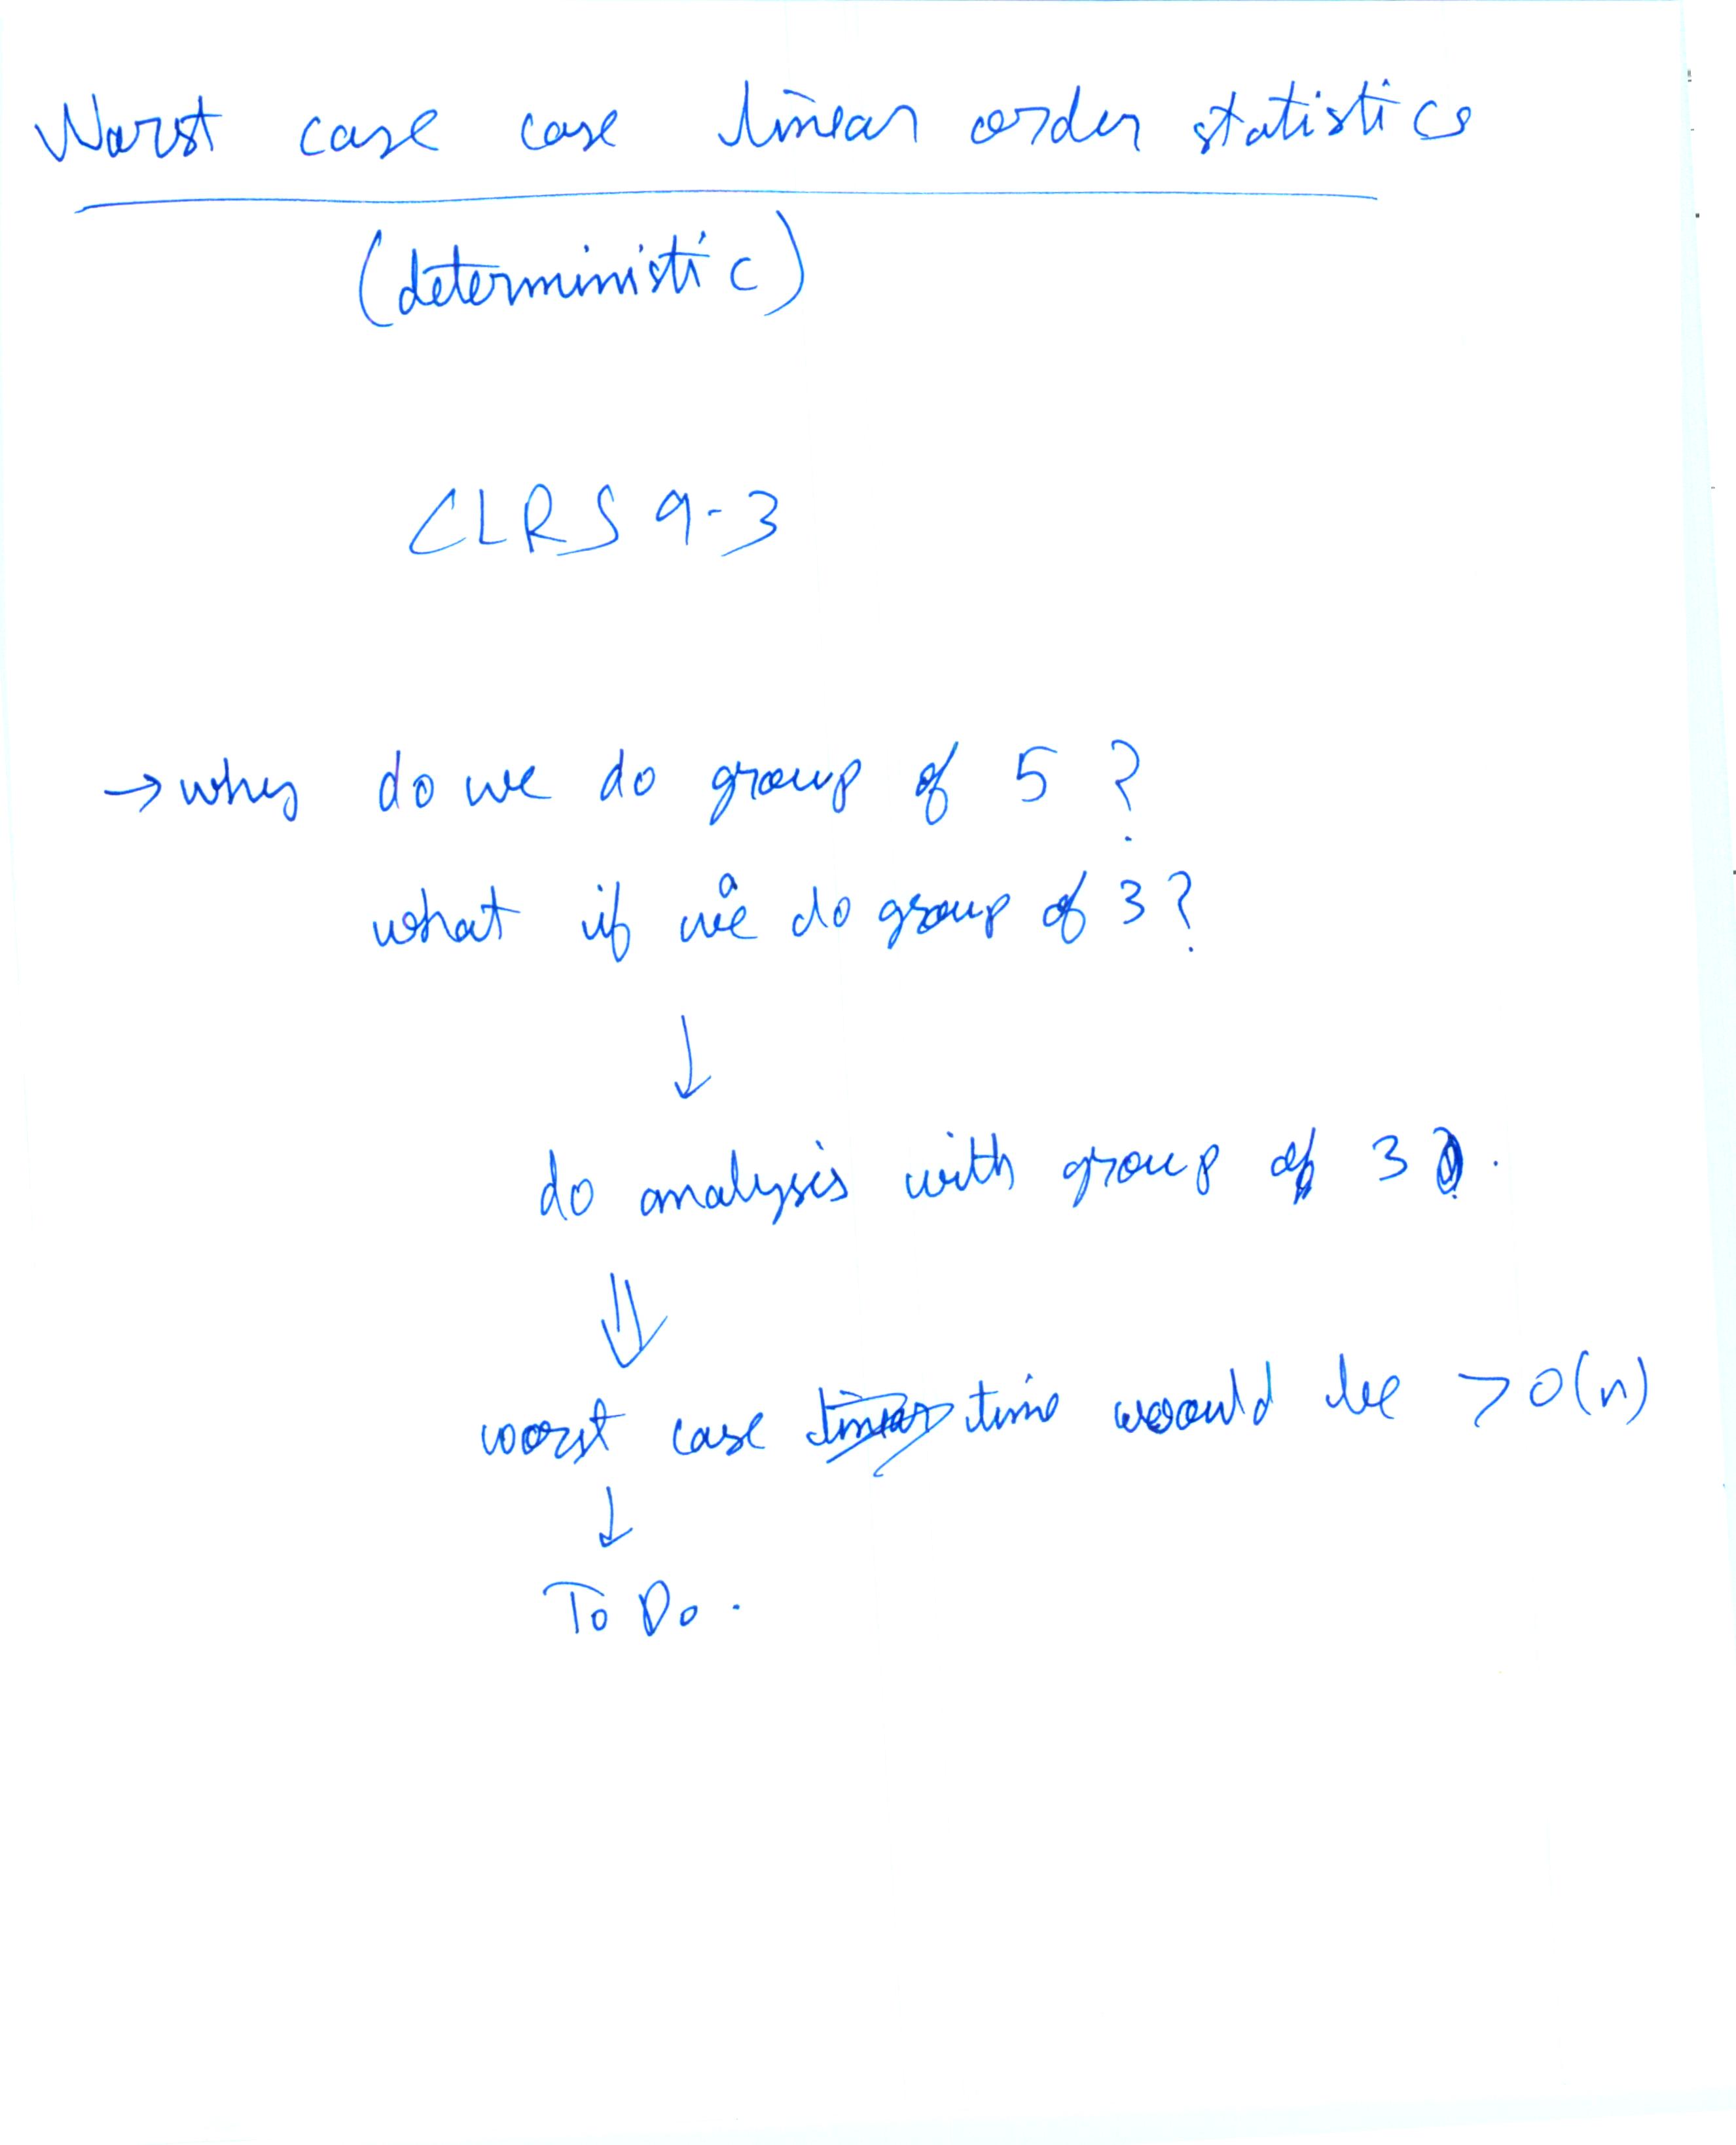 Worst case case linear order statistics
(deterministic)
CLRS 9-3
→ why do we do group of 5 ?
what if we do group of 3 ?
↓
do analysis with group of 3 .
⇓
worst case time would be > O(n)
↓
To Do .